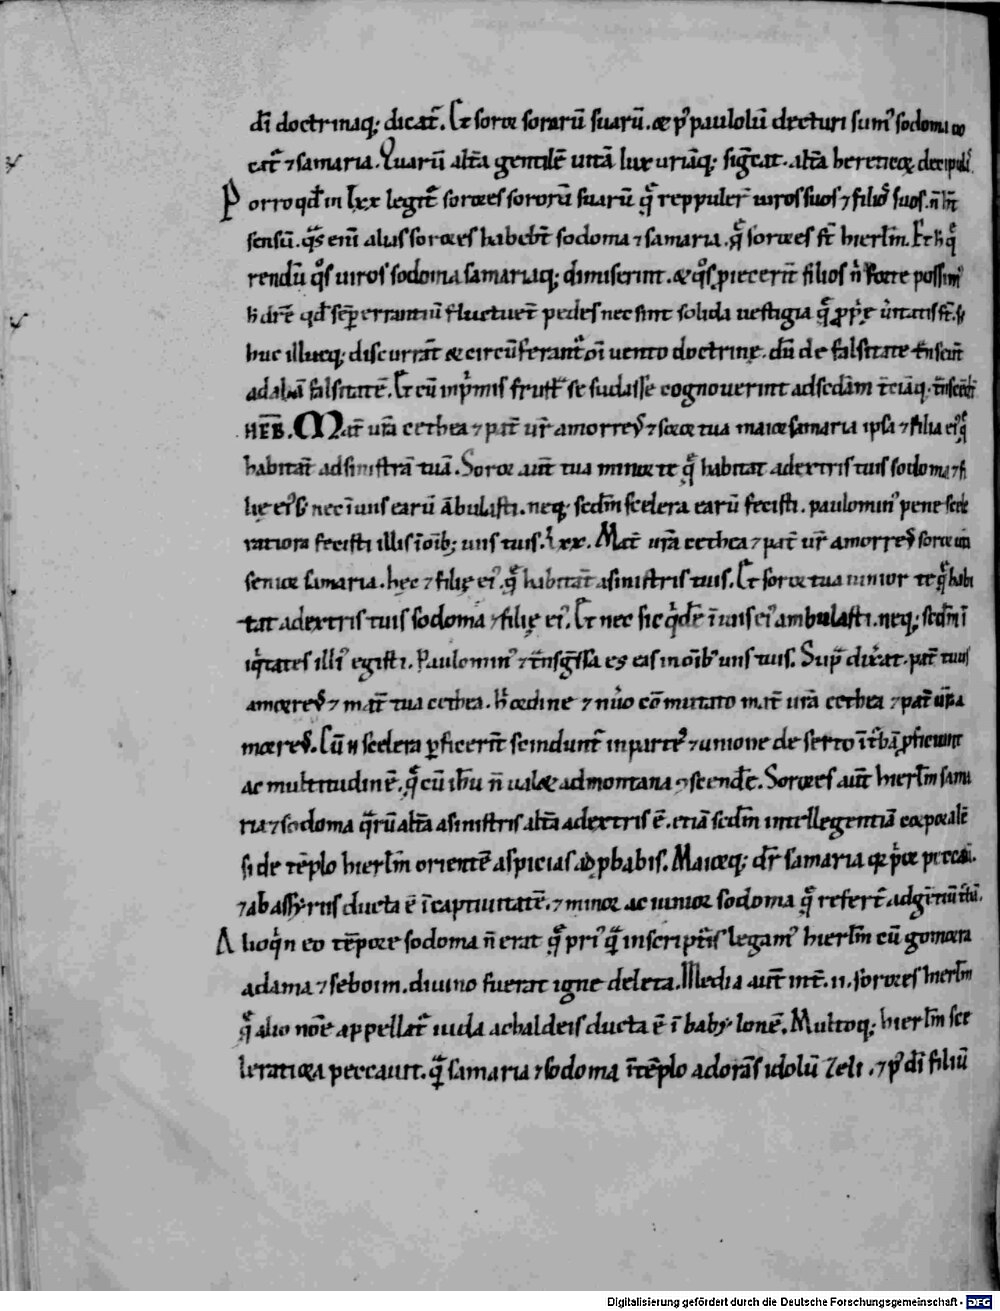 dī doctrinaq; dicat᷒. Et soror sorarū suarū. & p᷒ paulolū dicturi sum᷒ sodoma uo
cat᷒ ⁊ samaria. Quarū altā gentilē uitā luxuriāq; sig̅cat. altā hereticæ
Porro qd̄ in lxx legit᷒ sorores sororū suarū q̄ reppuler̄ uiros suos ⁊ filios suos. n̄ hn̄t
sensū. q̄s eni᷒ alias sorores habebt̄ sodoma ⁊ samaria. q̄ sorores st̄ hierlm̄. Et h̄ q̄
rendū q̄s uiros sodoma samariaq; dimiserint. & q̄s piecerit̄ filios n̄ facere possim᷒
h̄ dr̄e qd̄ sep̄ errantiū fluctuet᷒ pedes nec sint solida uestigia q̄ ppr̄e ueritatis st̄. s;
huc illucq; discurrāt & circūferant᷒ oi᷒ uento doctrinę. dū de falsitate t̄nseūt
ad aliā falsitatē. Et cū inp̄mis frustr̄ se sudasse cognouerint ad sed̄am
HEB. Mat᷒ ur̄a cethea ⁊ pat᷒ ur̄ amorre᷒ ⁊ soror tua maior samaria ipsa ⁊ filia ei᷒ q̄
habitat᷒ ad sinistrā tuā. Soror aut̄ tua minor te q̄ habitat ad extris tuis sodoma ⁊ fi
lię ei᷒ s; nec i᷒ uiis earū ābulasti. neq; scd̄m scelera earū fecisti. paulomin᷒ pene scele
ratiora fecisti illis i᷒ oib; uiis tuis. Lxx. Mat᷒ ur̄a cethea ⁊ pat᷒ ur̄ amorre᷒ soror ur̄a
senior samaria. hec ⁊ filię ei᷒. q̄ habitat᷒ a sinistris tuis. Et soror tua iunior te q̄ habi
tat a dextris tuis sodoma ⁊ filię ei᷒. Et nec sic q̄dē i᷒ uiis ei᷒ ambulasti. neq; scd̄m i
iq̄tates illi᷒ egisti. Paulomin᷒ ⁊ t̄nsg̅ssa es eas in oib᷒ uiis tuis. Sup̄ dixat. pat᷒ tuus
amorre᷒ ⁊ mat᷒ tua cethea. h̄ ordine ⁊ nūc cō mutato mat᷒ ur̄a cethea ⁊ pat᷒ ur̄ a
morre᷒. Cū n̄ scelera p̄ficerit̄ scindunt᷒ in parte᷒ ⁊ unione de serto i᷒ t̄bā p̄ficiunt
ac multitudinē. q̄ cū ihu n̄ ualet ad montana ꝯscendē. Sorores aut̄ hierlm̄ sama
ria ⁊ sodoma q̄rū altā a sinistris altā a dextris ē. etiā scd̄m intellegentiā corporalē
si de tēplo hierlm̄ orientē aspicias ꝯpbabis. Maiorq; dr̄ samaria qr prior peccau.
⁊ ab assyriis ducta ē i᷒ captiuitatē. ⁊ minor ac iunior sodoma q̄ refert᷒ ad
Alioq̄n eo tēpore sodoma n̄ erat q̄ pri᷒ q̄ in scriptis legam᷒ hierlm̄ cū gomora
adama ⁊ seboim. diuino fuerat igne deleta. Media aut̄ int᷒. ii. sorores hierlm̄
q̄ alio noīe appellat᷒ iuda a chaldeis ducta ē i᷒ babylonē. Multoq; hierlm̄ sce
leratiora peccauit. q̄ samaria ⁊ sodoma i᷒ tēplo adorās idolū zeli. ⁊ p᷒ dī filiū
Digitalisierung gefördert durch die Deutsche Forschungsgemeinschaft - DFG